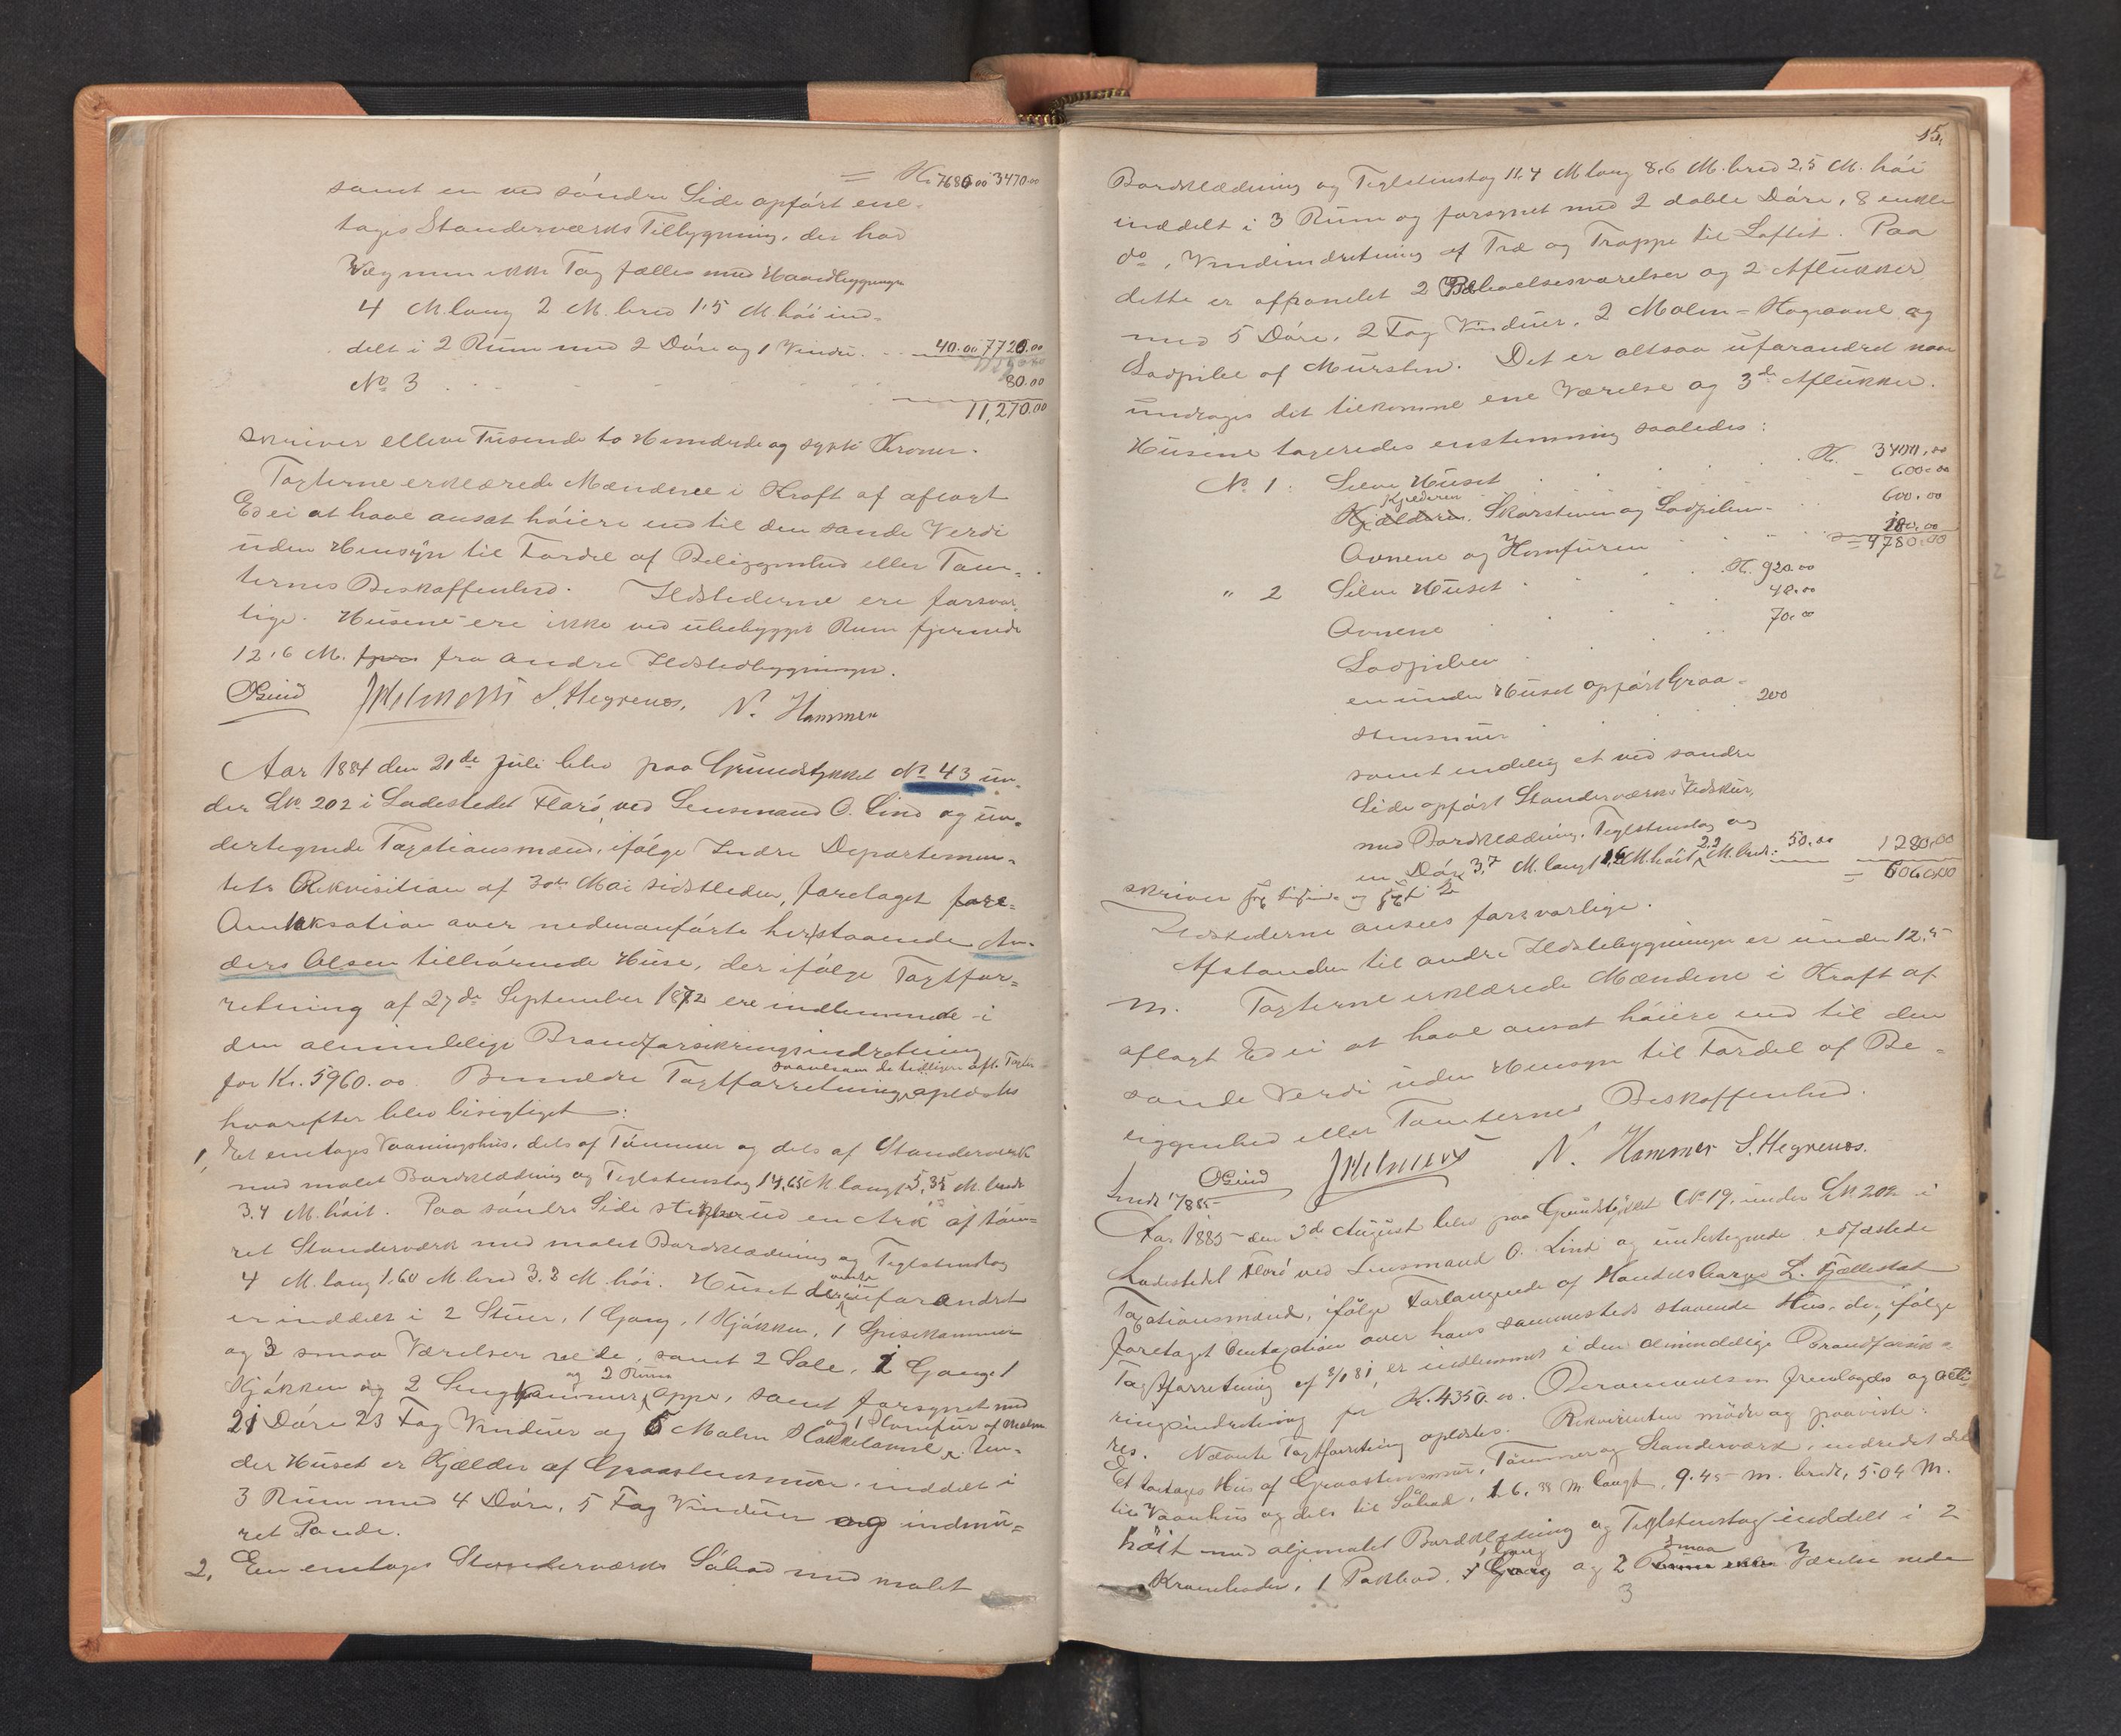 = Kr. 7680.00 3470.00
samt en ved søndre Side opført ene-
tages Standerværks Tilbygning, der har
Væg men ikke Tag fælles med Hovedbygningen
4 M. lang 2 M. bred 1.5 M. høi ind-
delt i 2 Rum med 2 Døre og 1 Vindu. 40.00 7720.00
No 3 . . . 80.00
11,270.00
skriver elleve Tusende to Hundrede og sytti Kroner.
Taxterne erklærede Mændene i Kraft af aflagt
Ed ei at have ansat høiere end til den sande Verdi
uden Hensyn til Fordel af Beliggenhed eller Tom-
ternes Beskaffenhed. Ildstederne ere forsvar-
lige. Husene ere ikke ved ubebygget Rum fjernede
12.6 M. fra andre Ildstedbygninger.
OLind S. Hegrenes. N. Hammer
Aar 1884 den 21de Juli blev paa Grundstykket No 43 un-
der Lk. 202 i Ladestedet Florø, ved Lensmand O. Lind og un-
dertegnede Taxationsmænd, ifølge Indre Departemen-
tets Rekvisition af 30te Mai sidstleden, foretaget
Omtaxation over nedenanførte herstaaende An-
ders Olsen tilhørende Huse, der ifølge Taxtfor-
retning af 27de September 1872 ere indlemmede i
den almindelige Brandforsikringsindretning
for Kr. 5960.00. Benævnte Taxtforretning saavelsom de tidligere afh. Taxter oplæstes
hvorefter blev besigtiget:
1, Et enetages Vaaningshus, dels af Tømmer og dels af Standerværk
med malet Bordklædning og Teglstenstag 14,65 M. langt 5,35 M. bredt
3.4 M. høit. Paa søndre Side en Ark af tøm-
ret Standerværk med malet Bordklædning og Teglstenstag
4 M. lang 1.60 M. bred 3.3 M. høi. Huset uforandret
er inddelt i 2 Stuer, 1 Gang, 1 Kjøkken, 1 Spisekammer
og 3 smaa Værelser nede, samt 2 Sale, 1 Gang 1
Kjøkken og 2 Sengkammer og 2 Rum oppe, samt forsynet med
21 Døre 23 Fag Vinduer og 5 Malm Kakkelovne og 1 Komfur af Malm. Un-
der Huset er Kjælder af Graastensmur, inddelt i
3 Rum med 4 Døre, 5 Fag Vinduer og indmu-
ret Pande.
2, En enetages Standerværks Søbod med malet
15.
Bordklædning og Teglstenstag 11.4 M lang 8.6 M. bred 2.5 M. høi
inddelt i 3 Rum og forsynet med 2 doble Døre, 8 enkle
do, Vindindretning af Træ og Trappe til Loftet. Paa
dette er afpanelet 2 Beboelsesværelser og 2 Aflukker
med 5 Døre, 2 Fag Vinduer, 2 Malm-Kogeovne og
Lodpibe af Mursten. Det er altsaa uforandret naar
undtages det tilkomne ene Værelse og 3de Aflukker.
Husene taxeredes enstemmig saaledes:
No 1. Selve Huset . . . Kr. 3400.00
Kjælderen - 600.00
Skorstenen og Lodpiben 600.00
Ovnene og Komfuren 180.00
= 4780.00
" 2 Selve Huset Kr. 920.00
Ovnene 40.00
Lodpiben 70.00
en under Huset opført Graa-
stensmur 200
samt endelig et ved søndre
Side opført Standerværks Vedskur,
med Bordklædning, Teglstenstag og
en Dør 3.7 M. langt 1.6 M. høit 2.2 M. bredt. 50.00 1280.00
= 6060.00
skriver sex tusinde og sexti Kr
Ildstederne ansees forsvarlige.
Afstanden til andre Ildstedbygninger er under 12.5
M. Taxterne erklærede Mændene i Kraft af
aflagt Ed ei at have ansat høiere end til den
sande Verdi uden Hensyn til Fordel af Be-
liggenhed eller Tomternes Beskaffenhed.
OLind N. Hammer S. Hegrenes.
Aar 1885 den 3de August blev paa Grundstykket No 19, under Lk. 202 i
Ladestedet Florø ved Lensmand O. Lind og undertegnede edfæstede
Taxationsmænd, ifølge Forlangende af Handelsborger L. Fjellestad
foretaget Omtaxation over hans sammesteds staaende Hus, der, ifølge
Taxtforretning af 8/8 81, er indlemmet i den almindelige Brandforsik-
ringsindretning for Kr. 4350.00. fremlagdes og
Nævnte Taxtforretning oplæstes. Rekvirenten mødte og paaviste:
Et toetages Hus af Graastensmur, Tømmer og Standerværk, indredet dels
til Vaanhus og dels til Søbod, 16,38 M. langt, 9.45 M. bredt, 5.04 M.
høit med oljemalet Bordklædning og Teglstenstag inddelt i 2
Kramboder, 1 Pakbod, 1 Gang og 2 smaa Værelser nede
3